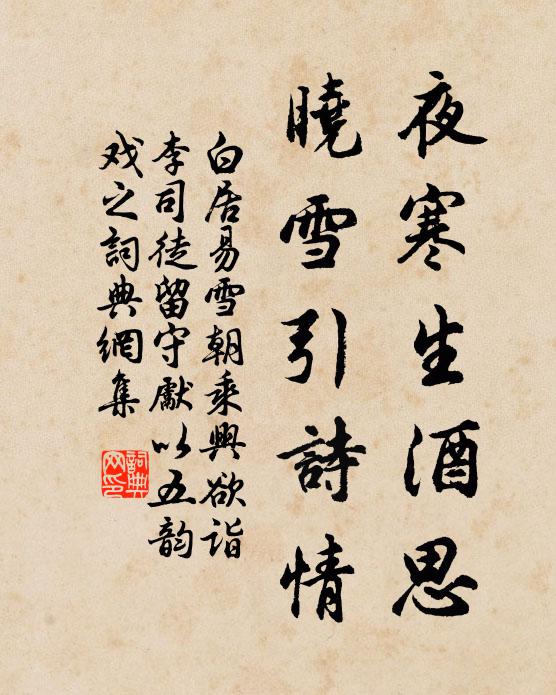 夜寒生酒思
曉雪引詩情
白居易雪朝乘興欲詣
李司徒留守獻以五韵
戏之詞典網集
詞典
网印